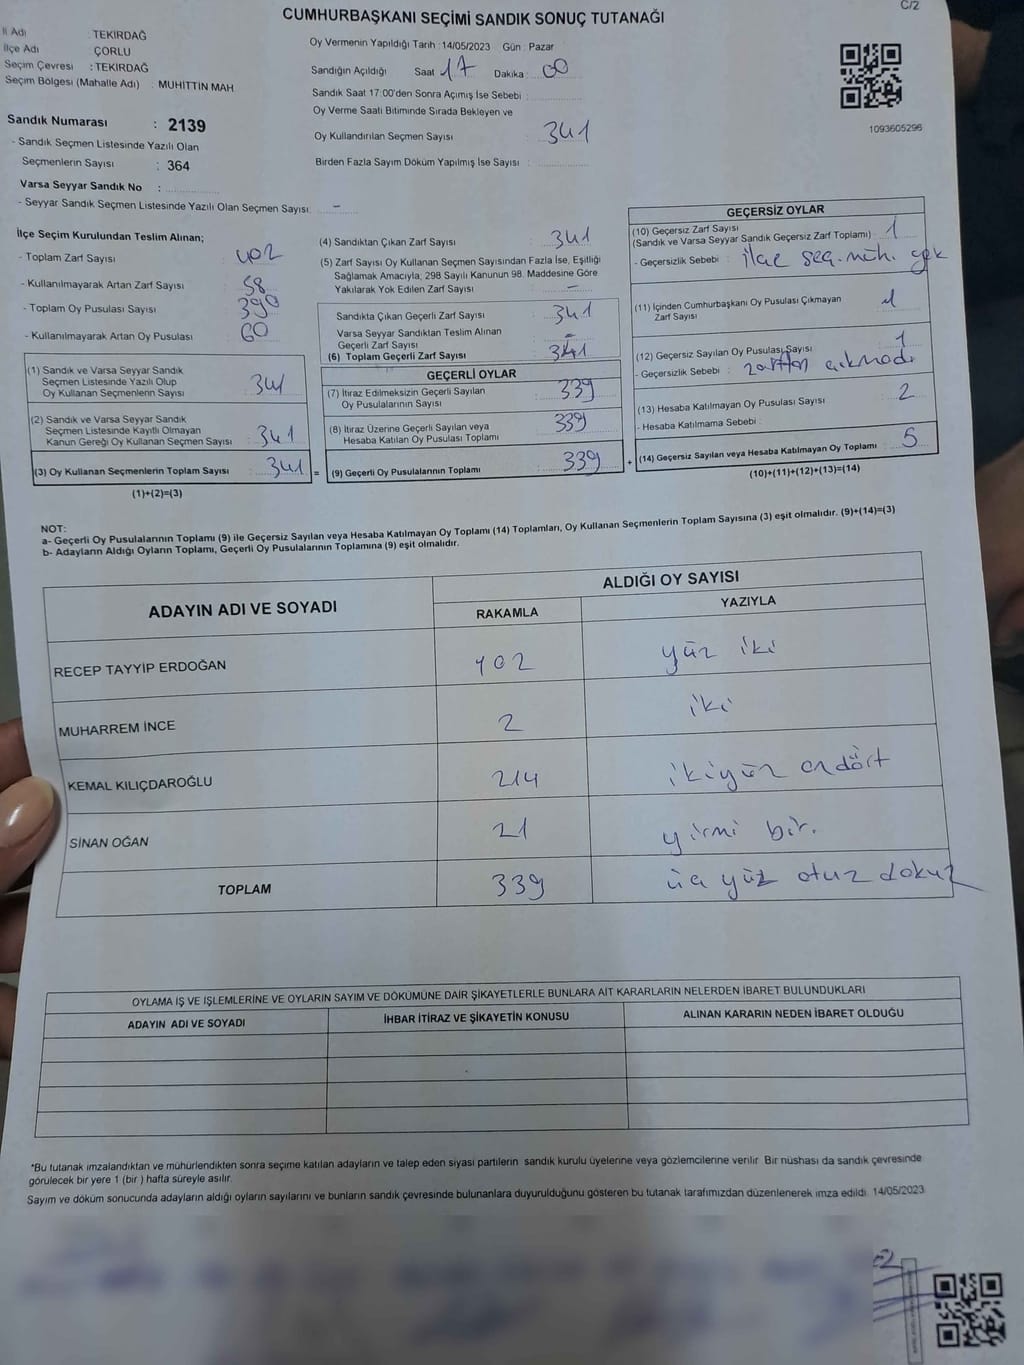 C/2
CUMHURBAŞKANI SEÇİMİ SANDIK SONUÇ TUTANAĞI
İl Adı : TEKİRDAĞ
İlçe Adı : ÇORLU
Seçim Çevresi : TEKİRDAĞ
Seçim Bölgesi (Mahalle Adı) : MUHİTTİN MAH.
Sandık Numarası : 2139
- Sandık Seçmen Listesinde Yazılı Olan
Seçmenlerin Sayısı : 364
Varsa Seyyar Sandık No :
- Seyyar Sandık Seçmen Listesinde Yazılı Olan Seçmen Sayısı: -
Oy Vermenin Yapıldığı Tarih : 14/05/2023 Gün : Pazar
Sandığın Açıldığı Saat 17 Dakika : 00
Sandık Saat 17:00'den Sonra Açımış İse Sebebi :
Oy Verme Saati Bitiminde Sırada Bekleyen ve
Oy Kullandırılan Seçmen Sayısı : 341
Birden Fazla Sayım Döküm Yapılmış İse Sayısı :
1093605296
İlçe Seçim Kurulundan Teslim Alınan;
- Toplam Zarf Sayısı : 402
- Kullanılmayarak Artan Zarf Sayısı : 58
- Toplam Oy Pusulası Sayısı : 390
- Kullanılmayarak Artan Oy Pusulası : 60
(1) Sandık ve Varsa Seyyar Sandık
Seçmen Listesinde Yazılı Olup
Oy Kullanan Seçmenlerin Sayısı : 341
(2) Sandık ve Varsa Seyyar Sandık
Seçmen Listesinde Kayıtlı Olmayan
Kanun Gereği Oy Kullanan Seçmen Sayısı : 341
(3) Oy Kullanan Seçmenlerin Toplam Sayısı : 341 =
(1)+(2)=(3)
(4) Sandıktan Çıkan Zarf Sayısı : 341
(5) Zarf Sayısı Oy Kullanan Seçmen Sayısından Fazla İse, Eşitliği
Sağlamak Amacıyla; 298 Sayılı Kanunun 98. Maddesine Göre
Yakılarak Yok Edilen Zarf Sayısı : -
Sandıkta Çıkan Geçerli Zarf Sayısı : 341
Varsa Seyyar Sandıktan Teslim Alınan
Geçerli Zarf Sayısı : -
(6) Toplam Geçerli Zarf Sayısı : 341
GEÇERLİ OYLAR
(7) İtiraz Edilmeksizin Geçerli Sayılan
Oy Pusulalarının Sayısı : 339
(8) İtiraz Üzerine Geçerli Sayılan veya
Hesaba Katılan Oy Pusulası Toplamı : 339
(9) Geçerli Oy Pusulalarının Toplamı : 339 +
GEÇERSİZ OYLAR
(10) Geçersiz Zarf Sayısı
(Sandık ve Varsa Seyyar Sandık Geçersiz Zarf Toplamı) : 1
- Geçersizlik Sebebi : ilçe seç. müh. yok
(11) İçinden Cumhurbaşkanı Oy Pusulası Çıkmayan
Zarf Sayısı : 1
(12) Geçersiz Sayılan Oy Pusulası Sayısı : 1
- Geçersizlik Sebebi : zarftan çıkmadı
(13) Hesaba Katılmayan Oy Pusulası Sayısı : 2
- Hesaba Katılmama Sebebi :
(14) Geçersiz Sayılan veya Hesaba Katılmayan Oy Toplamı : 5
(10)+(11)+(12)+(13)=(14)
NOT:
a- Geçerli Oy Pusulalarının Toplamı (9) ile Geçersiz Sayılan veya Hesaba Katılmayan Oy Toplamı (14) Toplamları, Oy Kullanan Seçmenlerin Toplam Sayısına (3) eşit olmalıdır. (9)+(14)=(3)
b- Adayların Aldığı Oyların Toplamı, Geçerli Oy Pusulalarının Toplamına (9) eşit olmalıdır.
ADAYIN ADI VE SOYADI ALDIĞI OY SAYISI
RAKAMLA YAZIYLA
RECEP TAYYİP ERDOĞAN 102 yüz iki
MUHARREM İNCE 2 iki
KEMAL KILIÇDAROĞLU 214 ikiyüz ondört
SİNAN OĞAN 21 yirmi bir.
TOPLAM 339 üç yüz otuz dokuz
OYLAMA İŞ VE İŞLEMLERİNE VE OYLARIN SAYIM VE DÖKÜMÜNE DAİR ŞİKAYETLERLE BUNLARA AİT KARARLARIN NELERDEN İBARET BULUNDUKLARI
ADAYIN ADI VE SOYADI İHBAR İTİRAZ VE ŞİKAYETİN KONUSU ALINAN KARARIN NEDEN İBARET OLDUĞU
*Bu tutanak imzalandıktan ve mühürlendikten sonra seçime katılan adayların ve talep eden siyasi partilerin sandık kurulu üyelerine veya gözlemcilerine verilir. Bir nüshası da sandık çevresinde
görülecek bir yere 1 (bir ) hafta süreyle asılır.
Sayım ve döküm sonucunda adayların aldığı oyların sayılarını ve bunların sandık çevresinde bulunanlara duyurulduğunu gösteren bu tutanak tarafımızdan düzenlenerek imza edildi. 14/05/2023